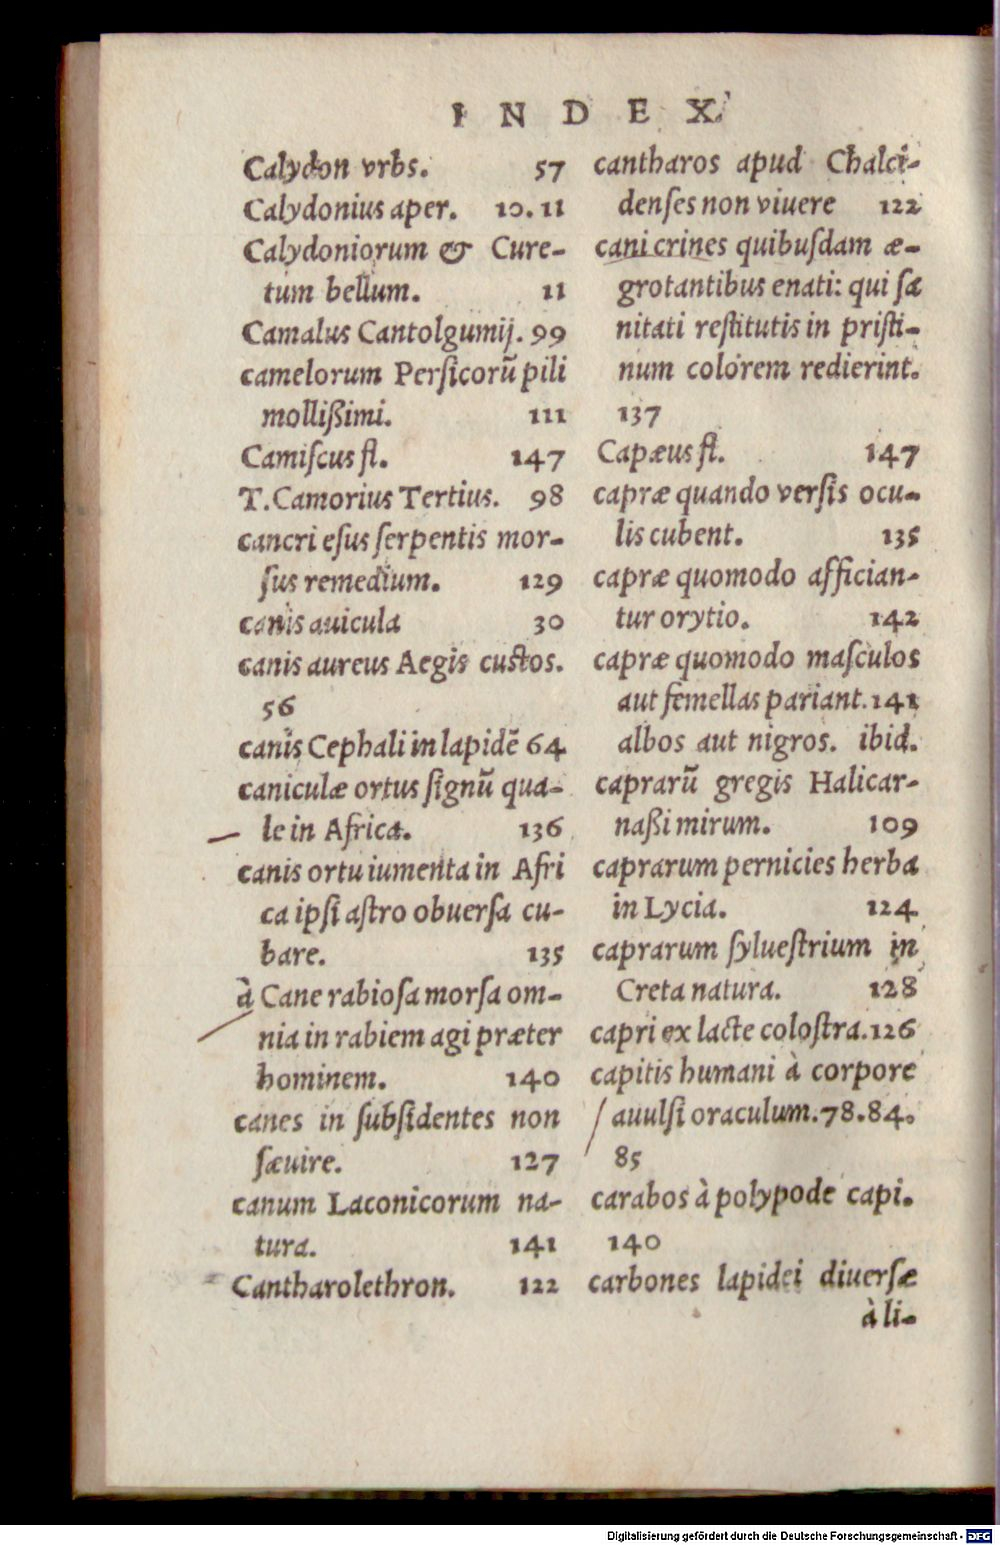 INDEX
Calydon vrbs. 57
Calydonius aper. 10. 11
Calydoniorum & Cure-
tum bellum. 11
Camalus Cantolgumij. 99
camelorum Persicorũ pili
mollißimi. 111
Camiſcus fl. 147
T. Camorius Tertius. 98
cancri eſus ſerpentis mor-
ſus remedium. 129
canis auicula 30
canis aureus Aegis cuſtos.
56
canis Cephali in lapidẽ 64
caniculæ ortus ſignũ qua-
le in Africa. 136
canis ortu iumenta in Afri
ca ipſi aſtro obuerſa cu-
bare. 135
à Cane rabioſa morſa om-
nia in rabiem agi præter
hominem. 140
canes in ſubſidentes non
ſæuire. 127
canum Laconicorum na-
tura. 141
Cantharolethron. 122
cantharos apud Chalci-
denſes non viuere 122
cani crines quibuſdam æ-
grotantibus enati: qui ſa
nitati reſtitutis in priſti-
num colorem redierint.
137
Capæus fl. 147
capræ quando verſis ocu-
lis cubent. 135
capræ quomodo affician-
tur orytio. 142
capræ quomodo maſculos
aut femellas pariant. 141
albos aut nigros. ibid.
caprarũ gregis Halicar-
naßi mirum. 109
caprarum pernicies herba
in Lycia. 124
caprarum ſylueſtrium in
Creta natura. 128
capri ex lacte coloſtra. 126
capitis humani à corpore
auulſi oraculum. 78. 84.
85
carabos à polypode capi.
140
carbones lapidei diuerſæ
à li-
Digitalisierung gefördert durch die Deutsche Forschungsgemeinschaft - DFG